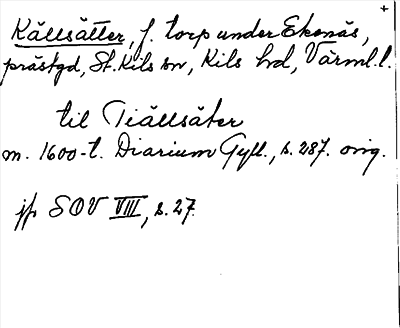 +
Källsätter, f. torp under Ekenäs,
prästgd, St. Kils sn, Kils hd, Värml. l.
til Tiällsäter
m. 1600-t. Diarium Gyll., s. 287. orig.
jfr SOV VIII, s. 27.